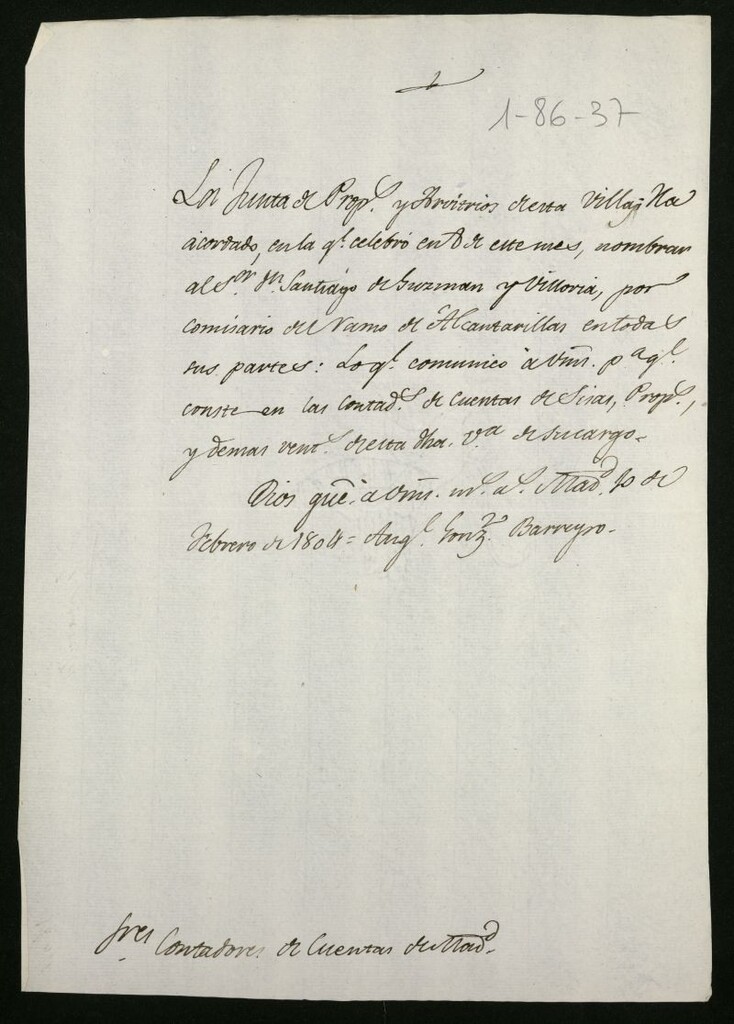 1-86-37
La Junta de Prop.s y Arvitrios de esta Villa, Ha
acordado, en la q.e celebró en 8 de este mes, nombrar
al S.or D.n Santiago de Guzman y Villoria, por
comisario del Ramo de Alcantarillas en todas
sus partes: Lo q.e comunico à Vms. p.a q.e
conste en las Contad.s de Cuentas de Sisas, Prop.s,
y demas de esta dha. V.a de su cargo.
Dios gue. à Vms. m.s a.s Mad.d 10 de
Febrero de 1804 = Ang.l Gonz.z Barreyro.
S.res Contadores de Cuentas de Mad.d